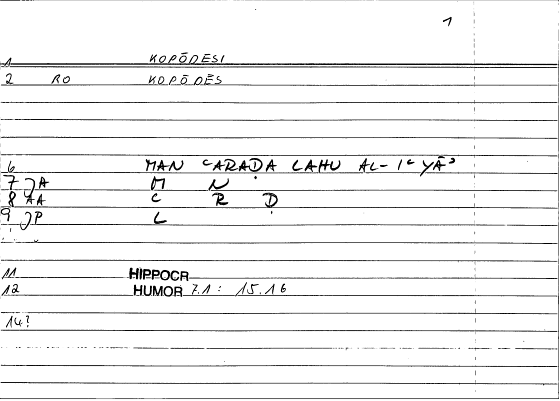 1
1 KOPŌDESI
2 RO KOPŌDĒS
6 MAN ʿARAḌA LAHU AL-IʿYĀʾ
7 JA M N
8 AA ʿ R Ḍ
9 JP L
11 HIPPOCR
12 HUMOR 7.1: 15.16
14?